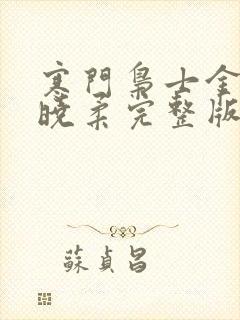 寒門梟士金
晚柔完整版
蘇貞昌